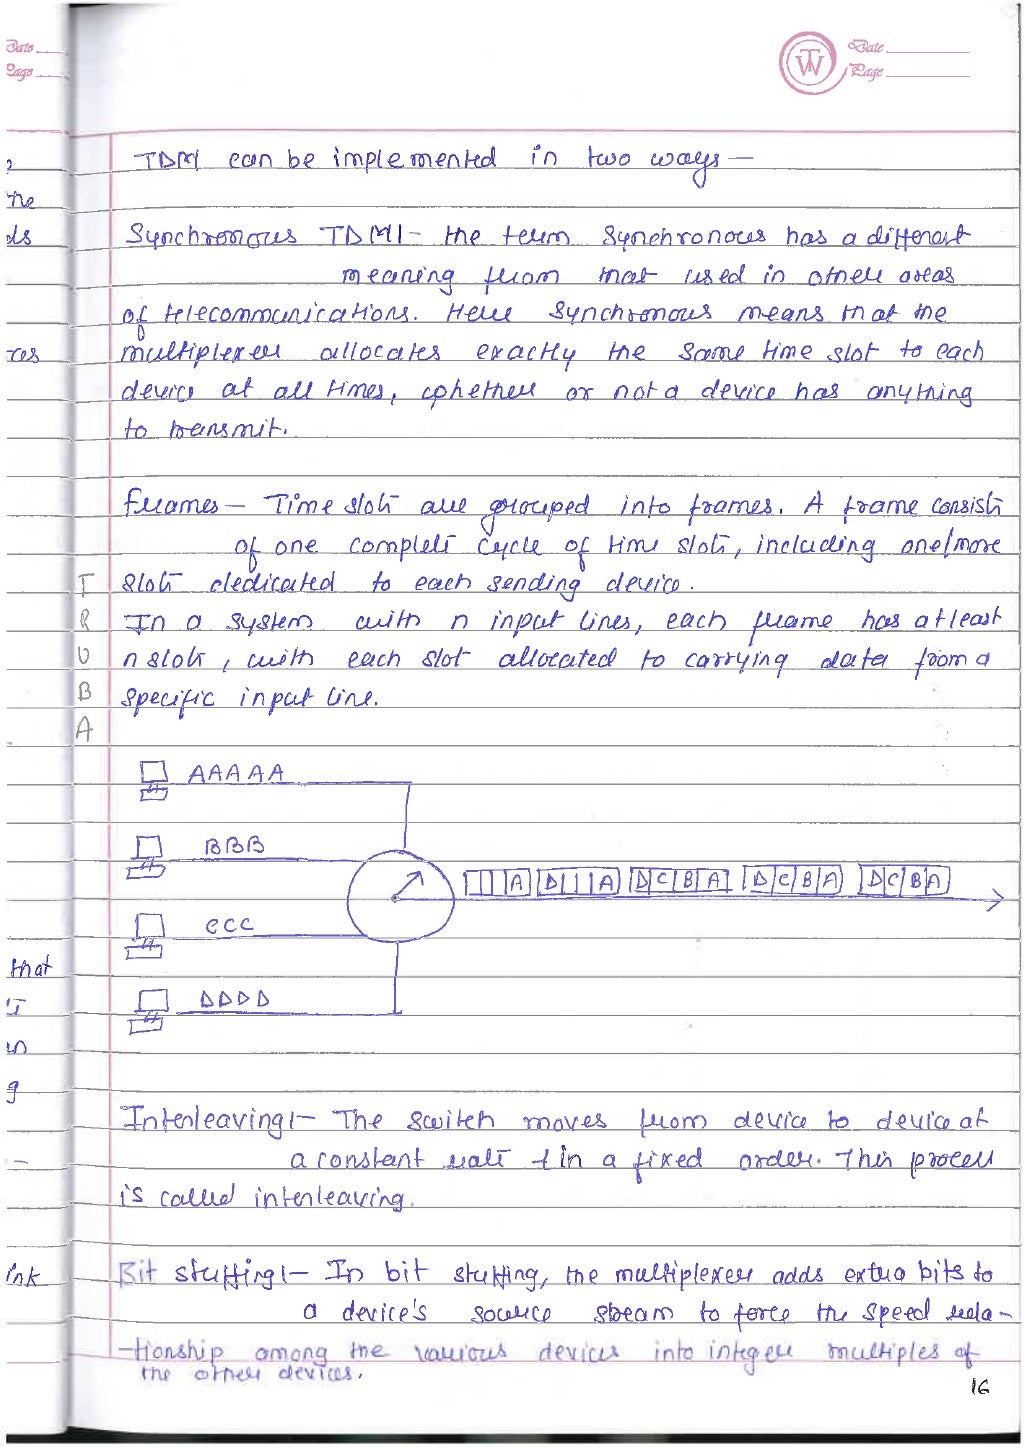 Date
Page
Date
Page
TW
TDM can be implemented in two ways —
Synchronous TDM!- the term synchronous has a different
meaning from that used in other areas
of telecommunications. Here synchronous means that the
multiplexer allocates exactly the same time slot to each
device at all times, whether or not a device has anything
to transmit.
frames — Time slots are grouped into frames. A frame consists
of one complete cycle of time slots, including one/more
slots dedicated to each sending device.
In a system with n input lines, each frame has atleast
n slots, with each slot allocated to carrying data from a
specific input line.
T
R
U
B
A
AAAAA
BBB
A D A D C B A D C B A D C B A
CCC
DDDD
Interleaving!- The switch moves from device to device at
a constant rate & in a fixed order. This process
is called interleaving.
Bit stuffing!- In bit stuffing, the multiplexer adds extra bits to
a device's source stream to force the speed rela-
-tionship among the various devices into integer multiples of
the other devices.
16
ne
ds
res
that
in
g
ink